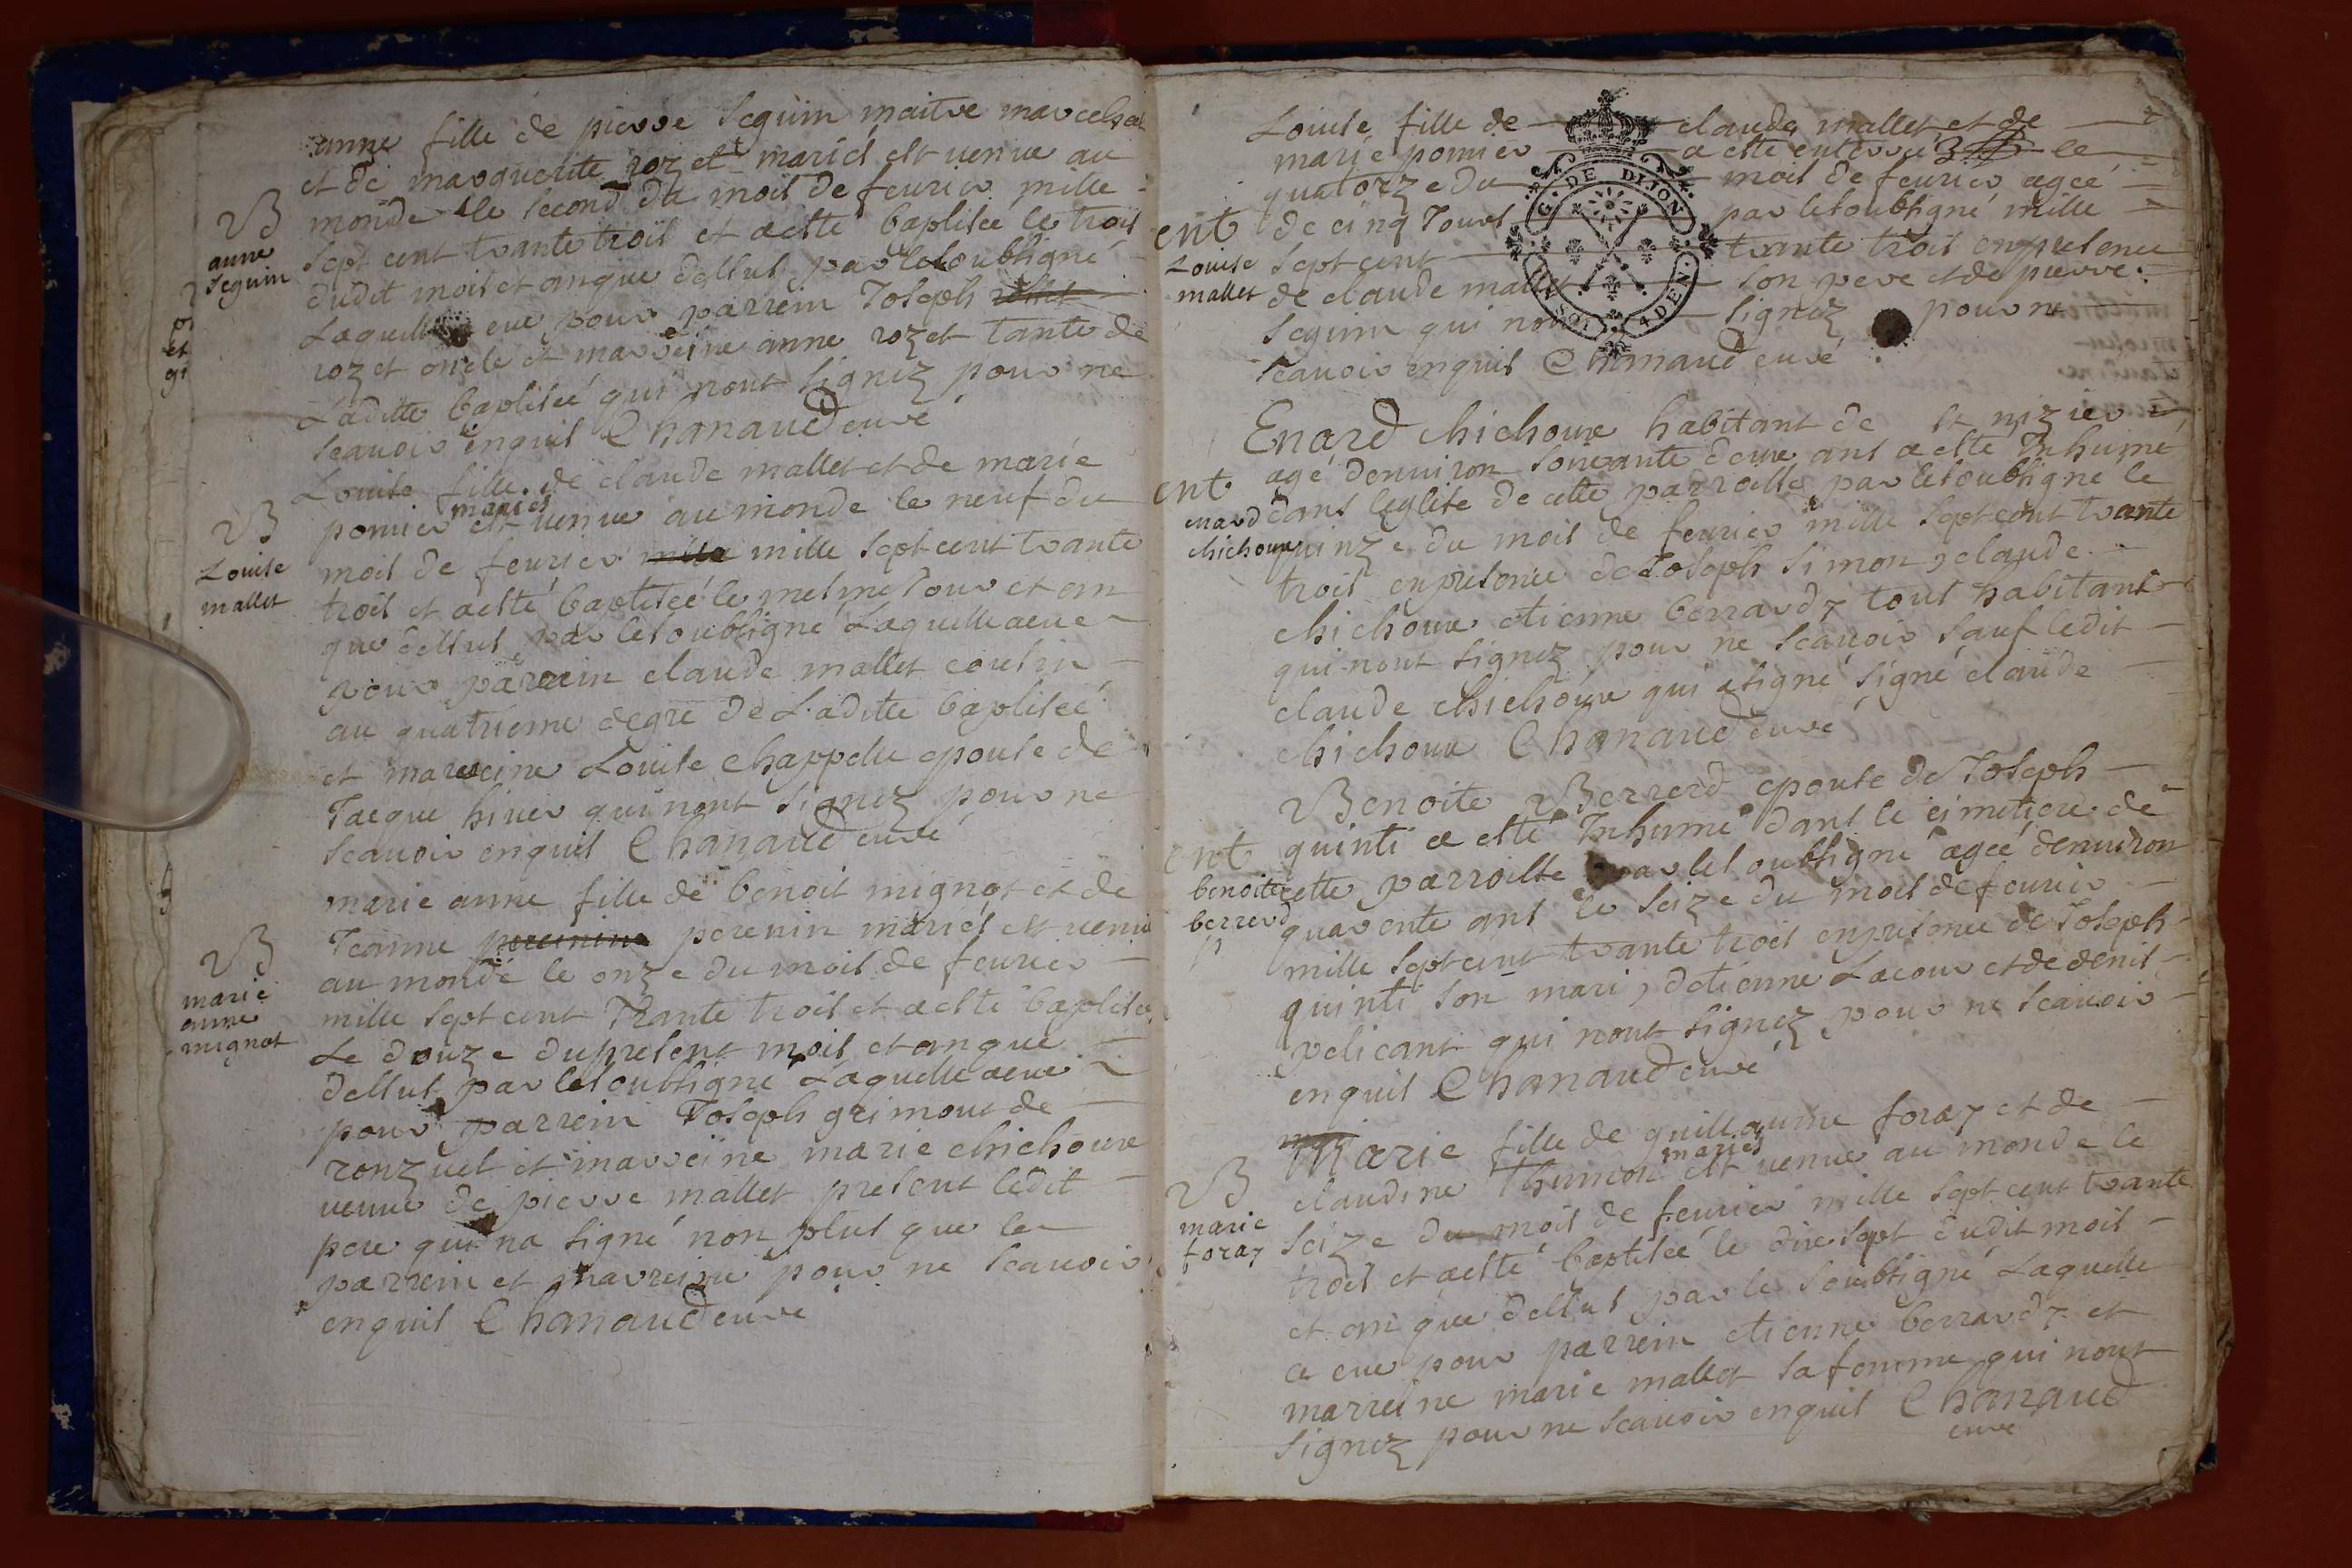 anne fille de pierre Seguin maitre marechal
et de marguerite rozet mariés est venue au
monde le second du mois de feurier mille
B
anne
Seguin
Sept cent trante trois et aesté baptisée le trois
dudit mois et an que dessus par le soubsigné
Laquelle a eue pour parrein Joseph
rozet oncle et marreine anne rozet tante de
Laditte baptisée qui nont signez pour ne
scauoir enquis Chanaud curé
Louise fille de claude mallet et de marie
pomier mariés est venue au monde le neuf du
B
Louise
mallet
mois de feurier mille sept cent trante
trois et aesté baptisée le mesme Jour et an
que dessus par le soubsigné Laquelle a eue
pour parrein claude mallet cousin
au quatrieme degré de Laditte baptisée
et marreine Louise chappelu epouse de
Jacque hiuer qui nont signez pour ne
scauoir enquis Chanaud curé
marie anne fille de benoit mignot et de
Jeanne perenin mariés est venue
B
marie
anne
mignot
au monde le onze du mois de feurier
mille sept cent Trante trois et aesté baptisée
Le douze du present mois et an que
dessus par le soubsigné Laquelle a eue
pour parrein Joseph grimout de
ronzuel et marreine marie chichoux
veuue de pierre mallet present ledit
pere qui na signé non plus que le
parrein et marreine pour ne scauoir
enquis Chanaud curé
Louise fille de claude mallet et de
marie pomier a esté enterré le
quatorze du mois de feurier agée
ent
Louise
mallet
de cinq Jours par le soubsigné mille
Sept cent trante trois en presence
de claude mallet son pere et de pierre
Seguin qui nont signez pour ne
scauoir enquis Chanaud curé
G. DE DIJON
4 DEN.
Enard chichoux habitant de st nizier
agé denuiron soixante deux ans a esté Inhumé
ent
enard
chichoux
dans leglise de cette parroisse par le soubsigné le
quinze du mois de feurier mille sept cent trante
trois en presence de Joseph Simon, claude
chichoux etienne berrardy tous habitans
qui nont signez pour ne scauoir sauf ledit
claude chichoux qui a signé signé claude
chichoux Chanaud curé
Benoite Berrerd epouse de Joseph
quinti a esté Inhumé dans le cimetiere de
ent
benoite
berrerd
cette parroisse par le soubsigné agée denuiron
quarente ans le seize du mois de feurier
mille sept cent trante trois en presence de Joseph
quinti son mari, detienne Lacour et de denis
pelicant qui nont signez pour ne scauoir
enquis Chanaud curé
Marie fille de guillaume foray et de
claudine Thumon mariés est venue au monde le
B
marie
foray
seize du mois de feurier mille sept cent trante
trois et aesté baptisée le dixsept dudit mois
et an que dessus par le soubsigné Laquelle
a eue pour parrein etienne berrardy et
marreine marie mallet sa femme qui nont
signez pour ne scauoir enquis Chanaud
curé